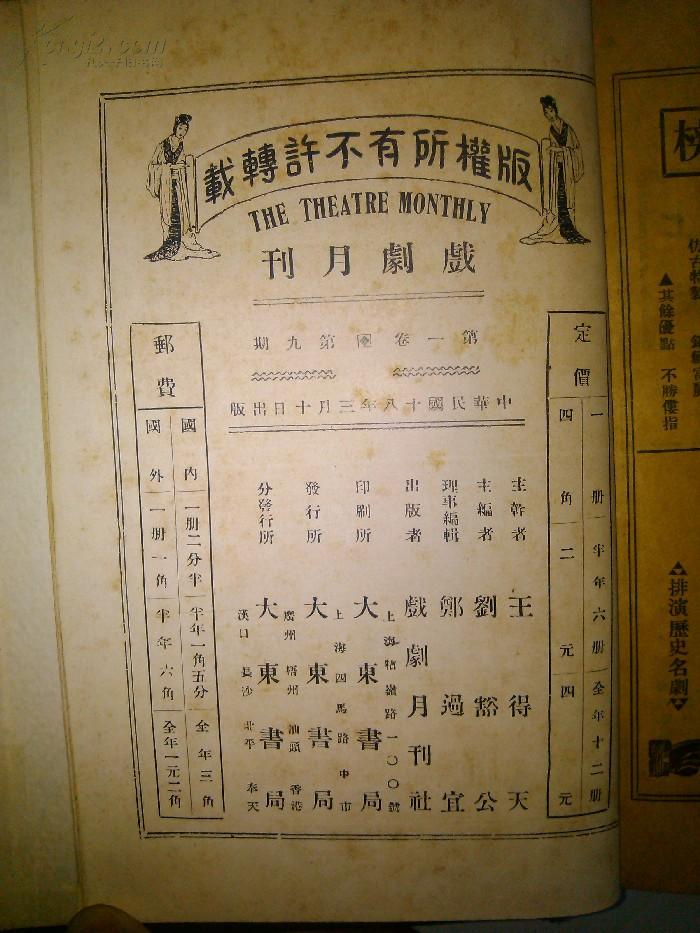 版權所有不許轉載
THE THEATRE MONTHLY
戲劇月刊
第一卷 第九期
中華民國十八年三月十日出版
定價
一册 四角
半年六册 二元
全年十二册 四元
主幹者 王得天
主編者 劉豁公
理事編輯 鄭過宜
出版者 戲劇月刊社
上海牯嶺路一〇〇號
印刷所 大東書局
上海四馬路中市
發行所 大東書局
廣州 梧州 汕頭 香港
分發行所 大東書局
漢口 長沙 北平 奉天
郵費
國內 一册二分半 半年一角五分 全年三角
國外 一册一角 半年六角 全年一元二角
▲其餘優點 不勝僂指
排演歷史名劇